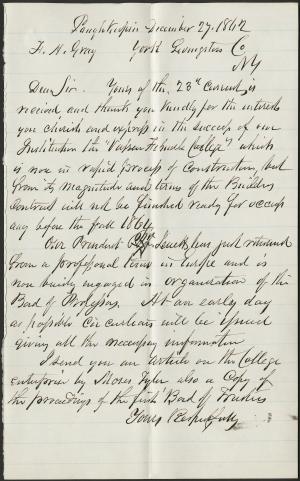 Poughkeepsie December 27. 1862
F. N. Gray York Livingston Co
NY
Dear Sir. Yours of the 23d current is
received and thank you kindly for the interest
you cherish and express in the success of our
Institution the "Vassar Female College" which
is now in rapid process of Construction, but
from its magnitude and terms of the Builders
Contract will not be finished ready for occup
ancy before the fall 1864.
Our President Jewett has just returned
from a professional tour in Europe and is
now busily engaged in organization of the
Board of Professors. At an early day
as possible Circulars will be issued
giving all the necessary information
I send you an article on the College
enterprise by Moses Tyler also a Copy of
the proceedings of the first Board of Trustees
Yours Respectfully